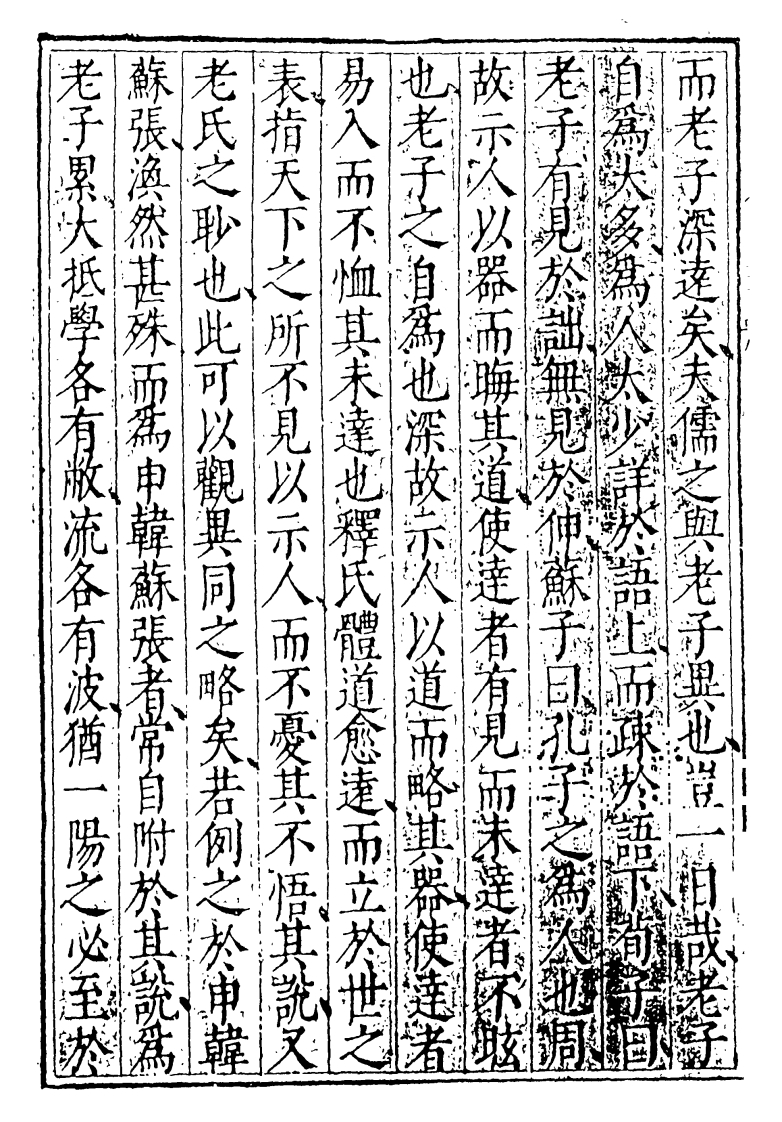 而老子深遠矣夫儒之與老子異也豈一日哉老子
自爲太多爲人太少詳於語上而疎於語下荀子曰
老子有見於詘無見於伸蘇子曰孔子之爲人也周
故示人以器而晦其道使達者有見而未達者不眩
也老子之自爲也深故示人以道而略其器使達者
易入而不恤其未達也釋氏體道愈遠而立於世之
表指天下之所不見以示人而不憂其不悟其說又
老氏之眇也此可以觀異同之略矣若例之於申韓
蘇張渙然甚殊而爲申韓蘇張者常自附於其說爲
老子累大抵學各有敝流各有波猶一陽之必至於